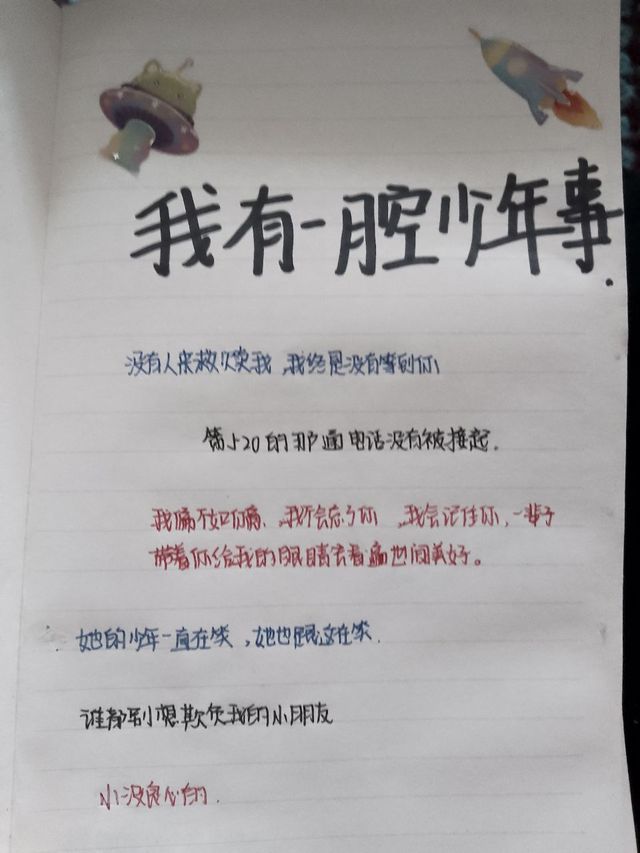 我有一腔少年事.
没有人来救欠奕我,我终是没有等到你
第520的那通电话没有被接起.
我痛不如你痛、我不会忘了你,我会记住你,一辈子
带着你给我的眼睛去看遍世间美好。
她的少年一直在笑,她也跟这在笑.
谁都别想欺负我的小朋友
小没良心的.